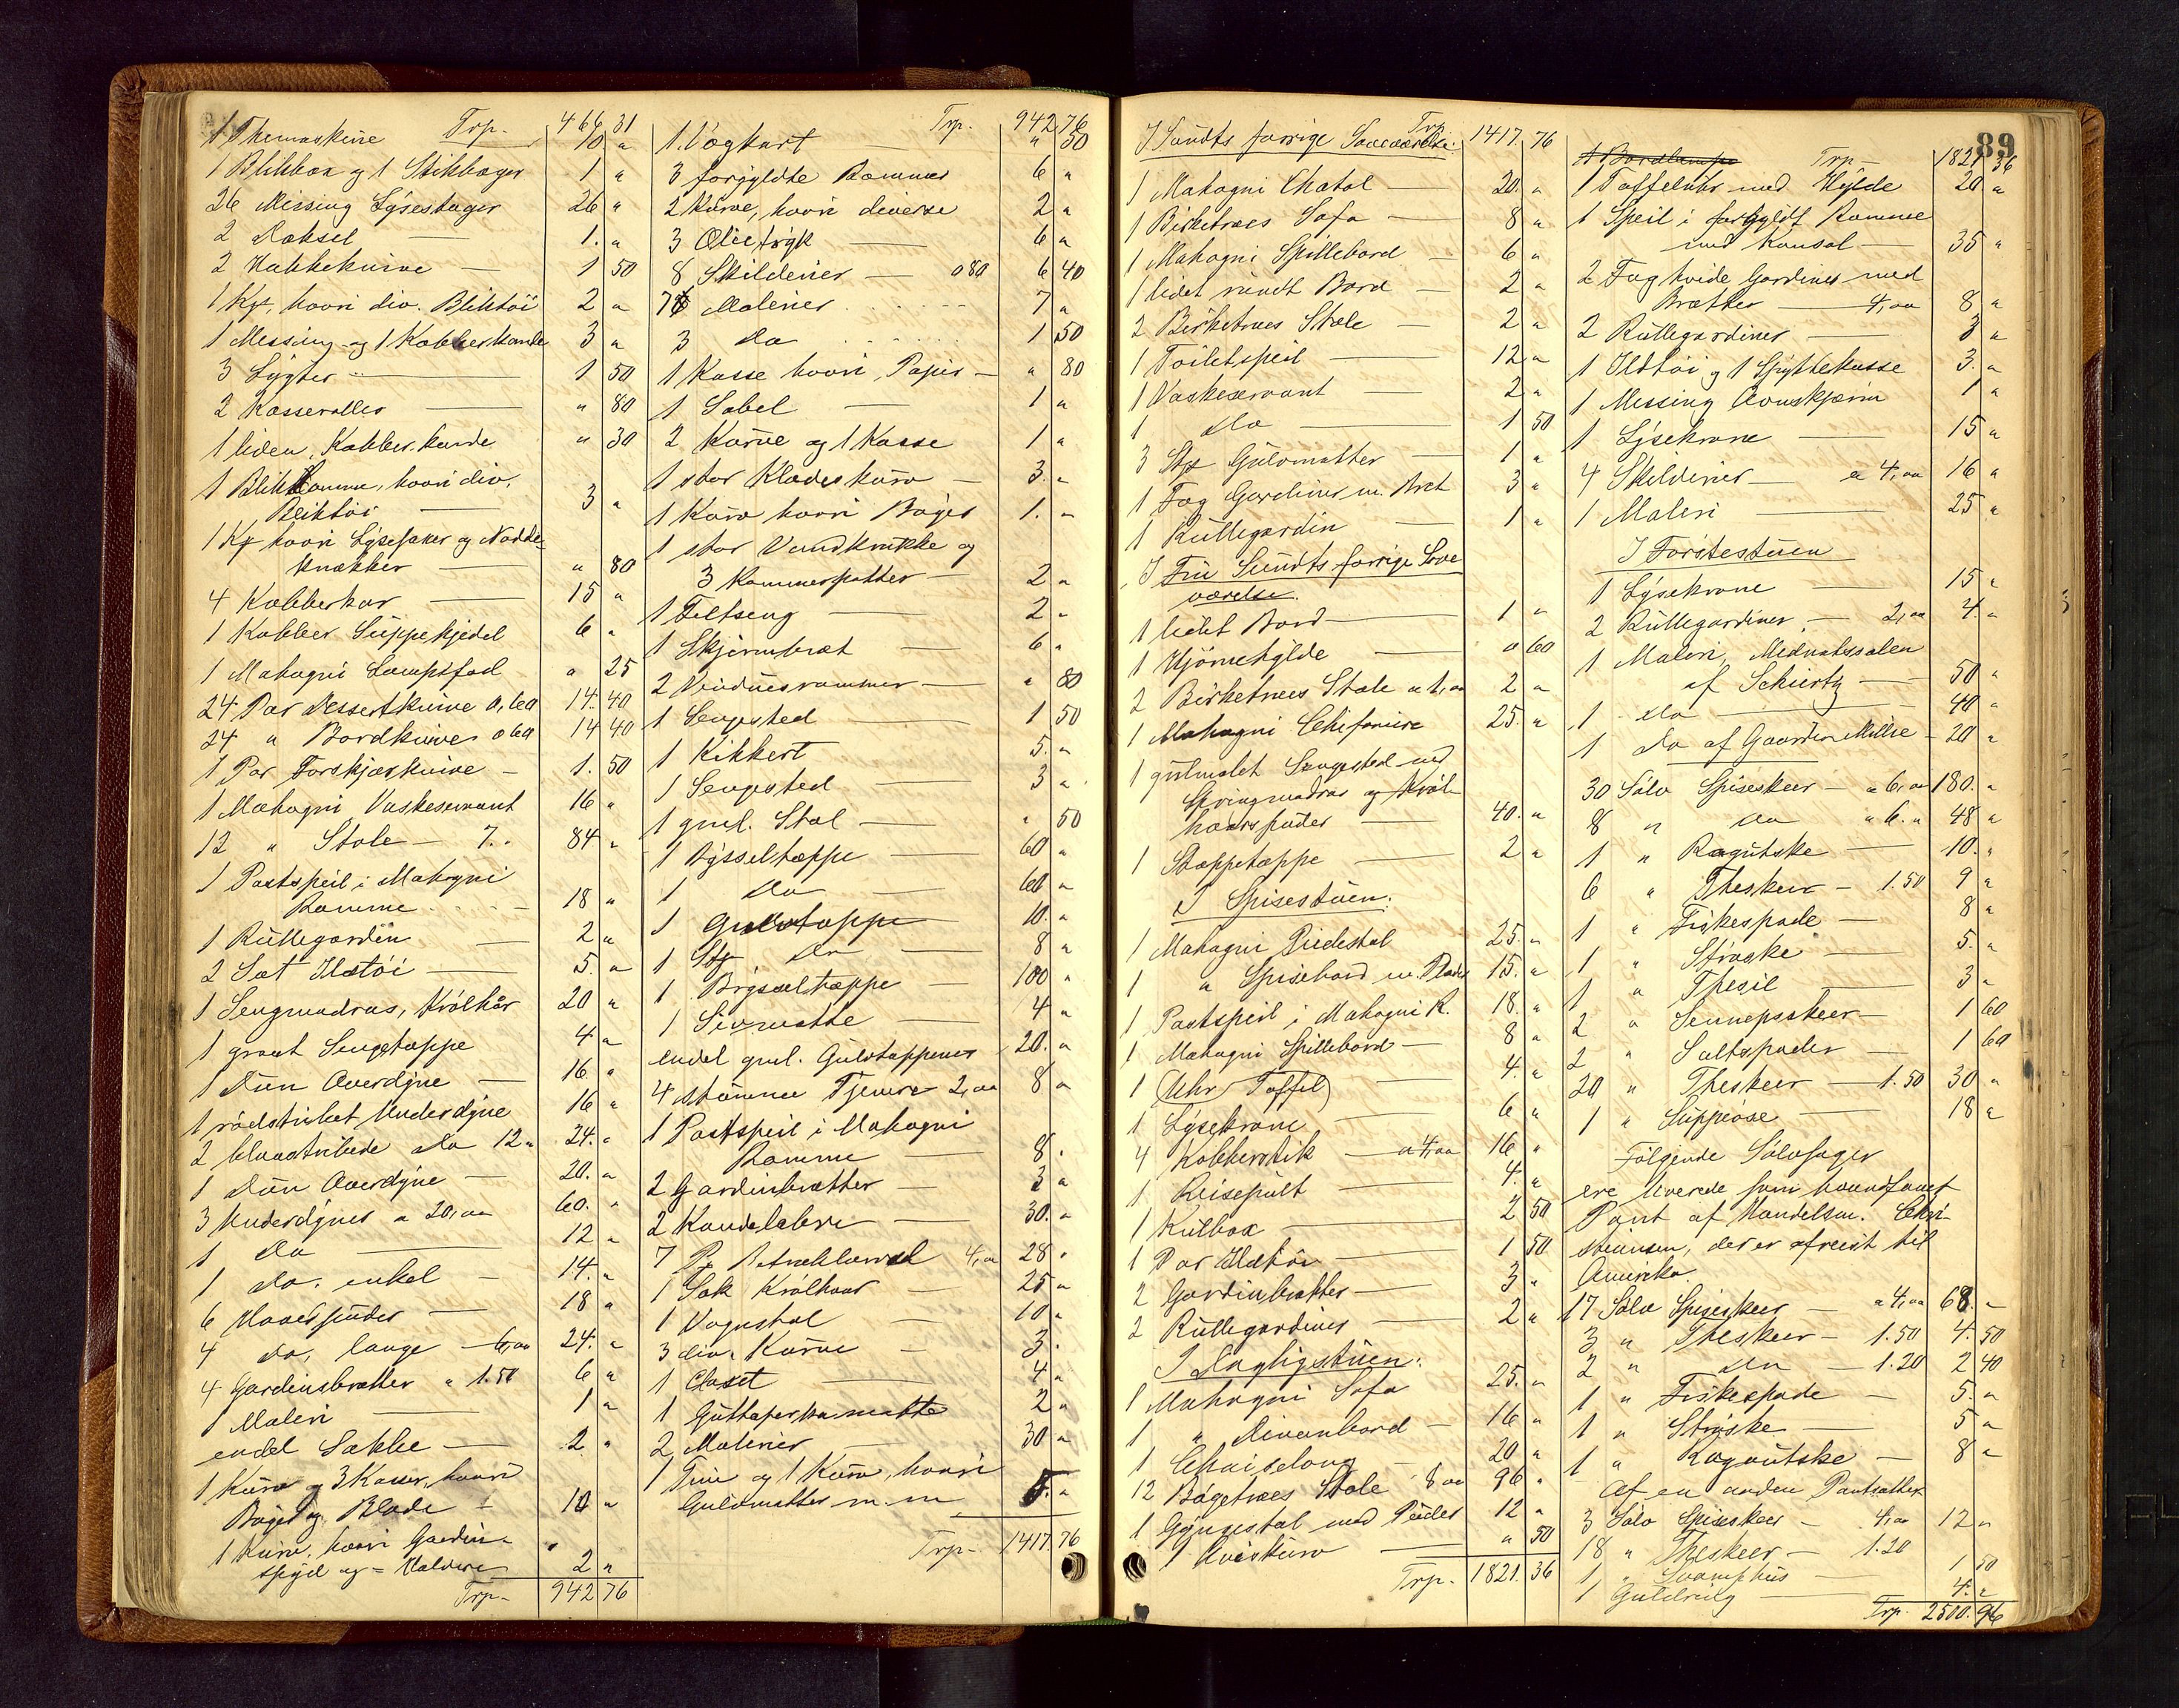 Trp. 466 31
1 Themaskine 10 "
1 Blikbox og 1 Stikbager 1 "
26 Messing Lysestager 26 "
2 Doksel 1. "
2 Hakkeknive 1 50
1 Kf, hvori div. Bliktøi 2 "
1 Messing og 1 Kobberkande 3 "
3 Lygter 1 50
2 Kasseroller " 80
1 liden Kobberkande " 30
1 Blikkomme, hvori div.
Bliktøi 3 "
1 Kf hvori Lysesaxer og Nødde-
knækker " 80
4 Kobberkar 15 "
1 Kobber Suppekjedel 6 "
1 Mahogni Lampefod " 25
24 Par Dessertknive 0,60 14. 40
24 " Bordknive 0 60 14 40
1 Par Forskjærknive 1. 50
1 Mahogni Vaskeservant 16 "
12 " Stole 7. " 84 "
1 Postspeil i Mahogni
Ramme 18 "
1 Rullegardin 2 "
2 Sæt Ildtøi 5. "
1 Sengmadras, Krølhår 20 "
1 graat Sengetæppe 4 "
1 Dun Overdyne 16. "
1 rødstribet Underdyne 16 "
2 blaastribede do 12 " 24. "
1 Dun Overdyne 20. "
3 Underdyner a 20,00 60. "
1 do 12 "
1 do. enkel 14. "
6 Hovedpuder 18 "
4 do, lange 6,00 24. "
4 Gardinbrætter " 1.50 6 "
1 Maleri 1 "
endel Sække 2 "
1 Kurv og 3 Kasser, hvori
Bøger og Blade 10 "
1 Kurv, hvori Gardin-
spyd og = Holdere 2 "
Trp. 942 76
Trp. 942 76
1 Vægkart " 50
3 forgyldte Rammer 6 "
2 Kurve, hvori diverse 2 "
3 Olietryk 6 "
8 Skilderier 0 80 6 40
7 Malerier 7 "
3 do 1 50
1 Kasse hvori Papir " 80
1 Sabel 1 "
2 Kurve og 1 Kasse 1 "
1 stor Klædeskurv 3. "
1 Kurv hvori Bøger 1. "
1 stor Vandkrukke og
3 Kammerpotter 2 "
1 Feltseng 2 "
1 Skjermbræt 6 "
2 Vinduesrammer " 80
1 Sengsted 1 50
1 Kikkert 5. "
1 Sengested 3 "
1 gml. Stol " 50
1 Bysseltæppe 60 "
1 do 60 "
1 Gulvtæppe 10. "
1 Stk do 8 "
1 Brysseltæppe 100 "
1 Sivmatte 4 "
endel gml. Gulvtæpper 20. "
4 Tjener 2,00 8 "
1 Postspeil i Mahogni
Ramme 8 "
2 Gardinbrætter 3 "
2 Kandelabre 30. "
7 4,00 28 "
1 Sæk Krølhaar 25 "
1 Vognstol 10 "
3 div. Kurve 3. "
1 Closet 4 "
1 Guttaperka matte 2 "
2 Malerier 30 "
1 Tine og 1 Kurv, hvori
Gulvmatter m m 5. "
Trp. 1417 76
89
Trp. 1417. 76
I Sundts forrige Soveværelse.
1 Mahogni Chatol 20. "
1 Birketræes Sofa 8 "
1 Mahogni Spillebord 6 "
1 lidet rundt Bord 2 "
2 Birketræes Stole 2 "
1 Toiletspeil 12 "
1 Vaskeservant 2 "
1 do 1 50
3 Stk Gulvmatter 1 "
1 Fag Gardiner m. Bræt 3 "
1 Rullegardin 1 "
I Fru Sundts forrige Sove
værelse.
1 lidet Bord 1 "
1 Hjørnehylde 0 60
2 Birketræes Stole a 1,00 2 "
1 Mahogni Chifoniere 25. "
1 gulmalet Sengested med
Springmadras og Krøl-
haarspuder 40. "
1 Stoppetæppe 2 "
I Spisestuen:
1 Mahogni Piedestal 25. "
1 " Spisebord m. Plader 15. "
1 Postspeil i Mahogni R. 18. "
1 Mahogni Spillebord 8 "
1 Uhr (Taffel) 4. "
1 Lysekrone 6 "
4 Kobberstik a 4,00 16 "
1 Reisepult 4. "
1 Kulbox 2 50
1 Par Ildtøi 1 50
2 Gardinbrætter 3 "
2 Rullegardiner 2 "
I Dagligstuen:
1 Mahogni Sofa 25. "
1 " Divanbord 16 "
1 Chaiselong 20 "
12 Bøgetræes Stole 8 00 96 "
1 Gyngestol med Puder 12 "
1 Aviskurv " 50
Trp. 1821. 36
1 Bordlampe Trp. 1821 36
1 Taffeluhr med Hylde 20 "
1 Speil i forgyldt Ramme
med Konsol 35 "
2 Fag hvide Gardiner med
Brætter 4,00 8 "
2 Rullegardiner 3 "
1 Ildtøi og 1 Spyttekasse 3. "
1 Messing Ovnskjærm 1 "
1 Lysekrone 15 "
4 Skilderier a 4,00 16 "
1 Maleri 25 "
I Forstestuen
1 Lysekrone 15 "
2 Rullegardiner 2,00 4. "
1 Maleri, Midnatssolen
af Schiertz 50 "
1 do 40 "
1 do af Gaarden Milse 20 "
30 Sølv Spiseskeer a 6,00 180. "
8 " do " 6. " 48 "
1 " Ragutske 10. "
6 " Theskeer 1.50 9 "
1 " Fiskespade 8 "
1 " Strøske 5. "
1 " Thesil 3 "
2 " Sennepsskeer 1 60
2 " Saltspader 1 60
20 " Theskeer 1.50 30 "
1 " Suppeøse 18 "
Følgende Sølvsager
ere leverede som haandfaaet
Pant af Handelsm. Chri-
stiansen, der er afreist til
Amerika.
17 Sølv Spiseskeer a 4,00 68. "
3 " Theskeer 1.50 4. 50
2 " do 1.20 2 40
1 " Fiskespade 5. "
1 " Strøske 5 "
1 " Ragoutske 8 "
Af en anden Pantsætter
3 Sølv Spiseskeer 4,00 12 "
18 " Theskeer 1.20
1 " Svamphus 1 50
1 Guldring 4. "
Trp. 2500. 96